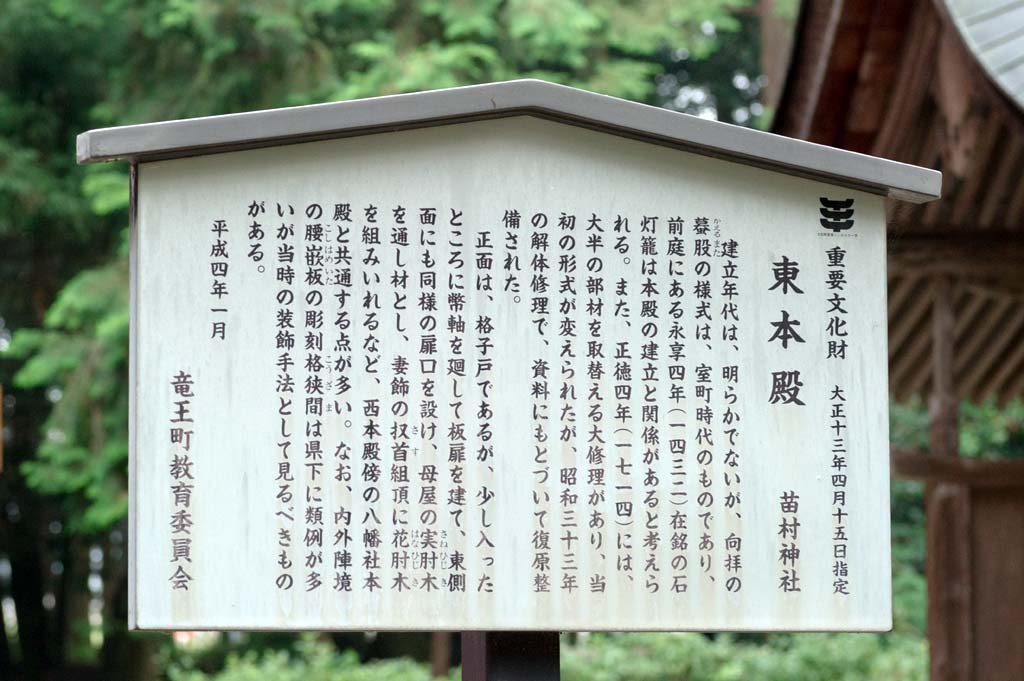 重要文化財　大正十三年四月十五日指定
東本殿　苗村神社
建立年代は、明らかでないが、向拝の
蟇股の様式は、室町時代のものであり、
かえるまた
前庭にある永享四年(一四三二)在銘の石
灯籠は本殿の建立と関係があると考えら
れる。また、正徳四年(一七一四)には、
大半の部材を取替える大修理があり、当
初の形式が変えられたが、昭和三十三年
の解体修理で、資料にもとづいて復原整
備された。
正面は、格子戸であるが、少し入った
ところに幣軸を廻して板扉を建て、東側
面にも同様の扉口を設け、母屋の実肘木
さねひじき
を通し材とし、妻飾の扠首組頂に花肘木
さす
はなひじき
を組みいれるなど、西本殿傍の八幡社本
殿と共通する点が多い。なお、内外陣境
の腰嵌板の彫刻格狭間は県下に類例が多
こしはめいた
こうざま
いが当時の装飾手法として見るべきもの
がある。
平成四年一月
竜王町教育委員会